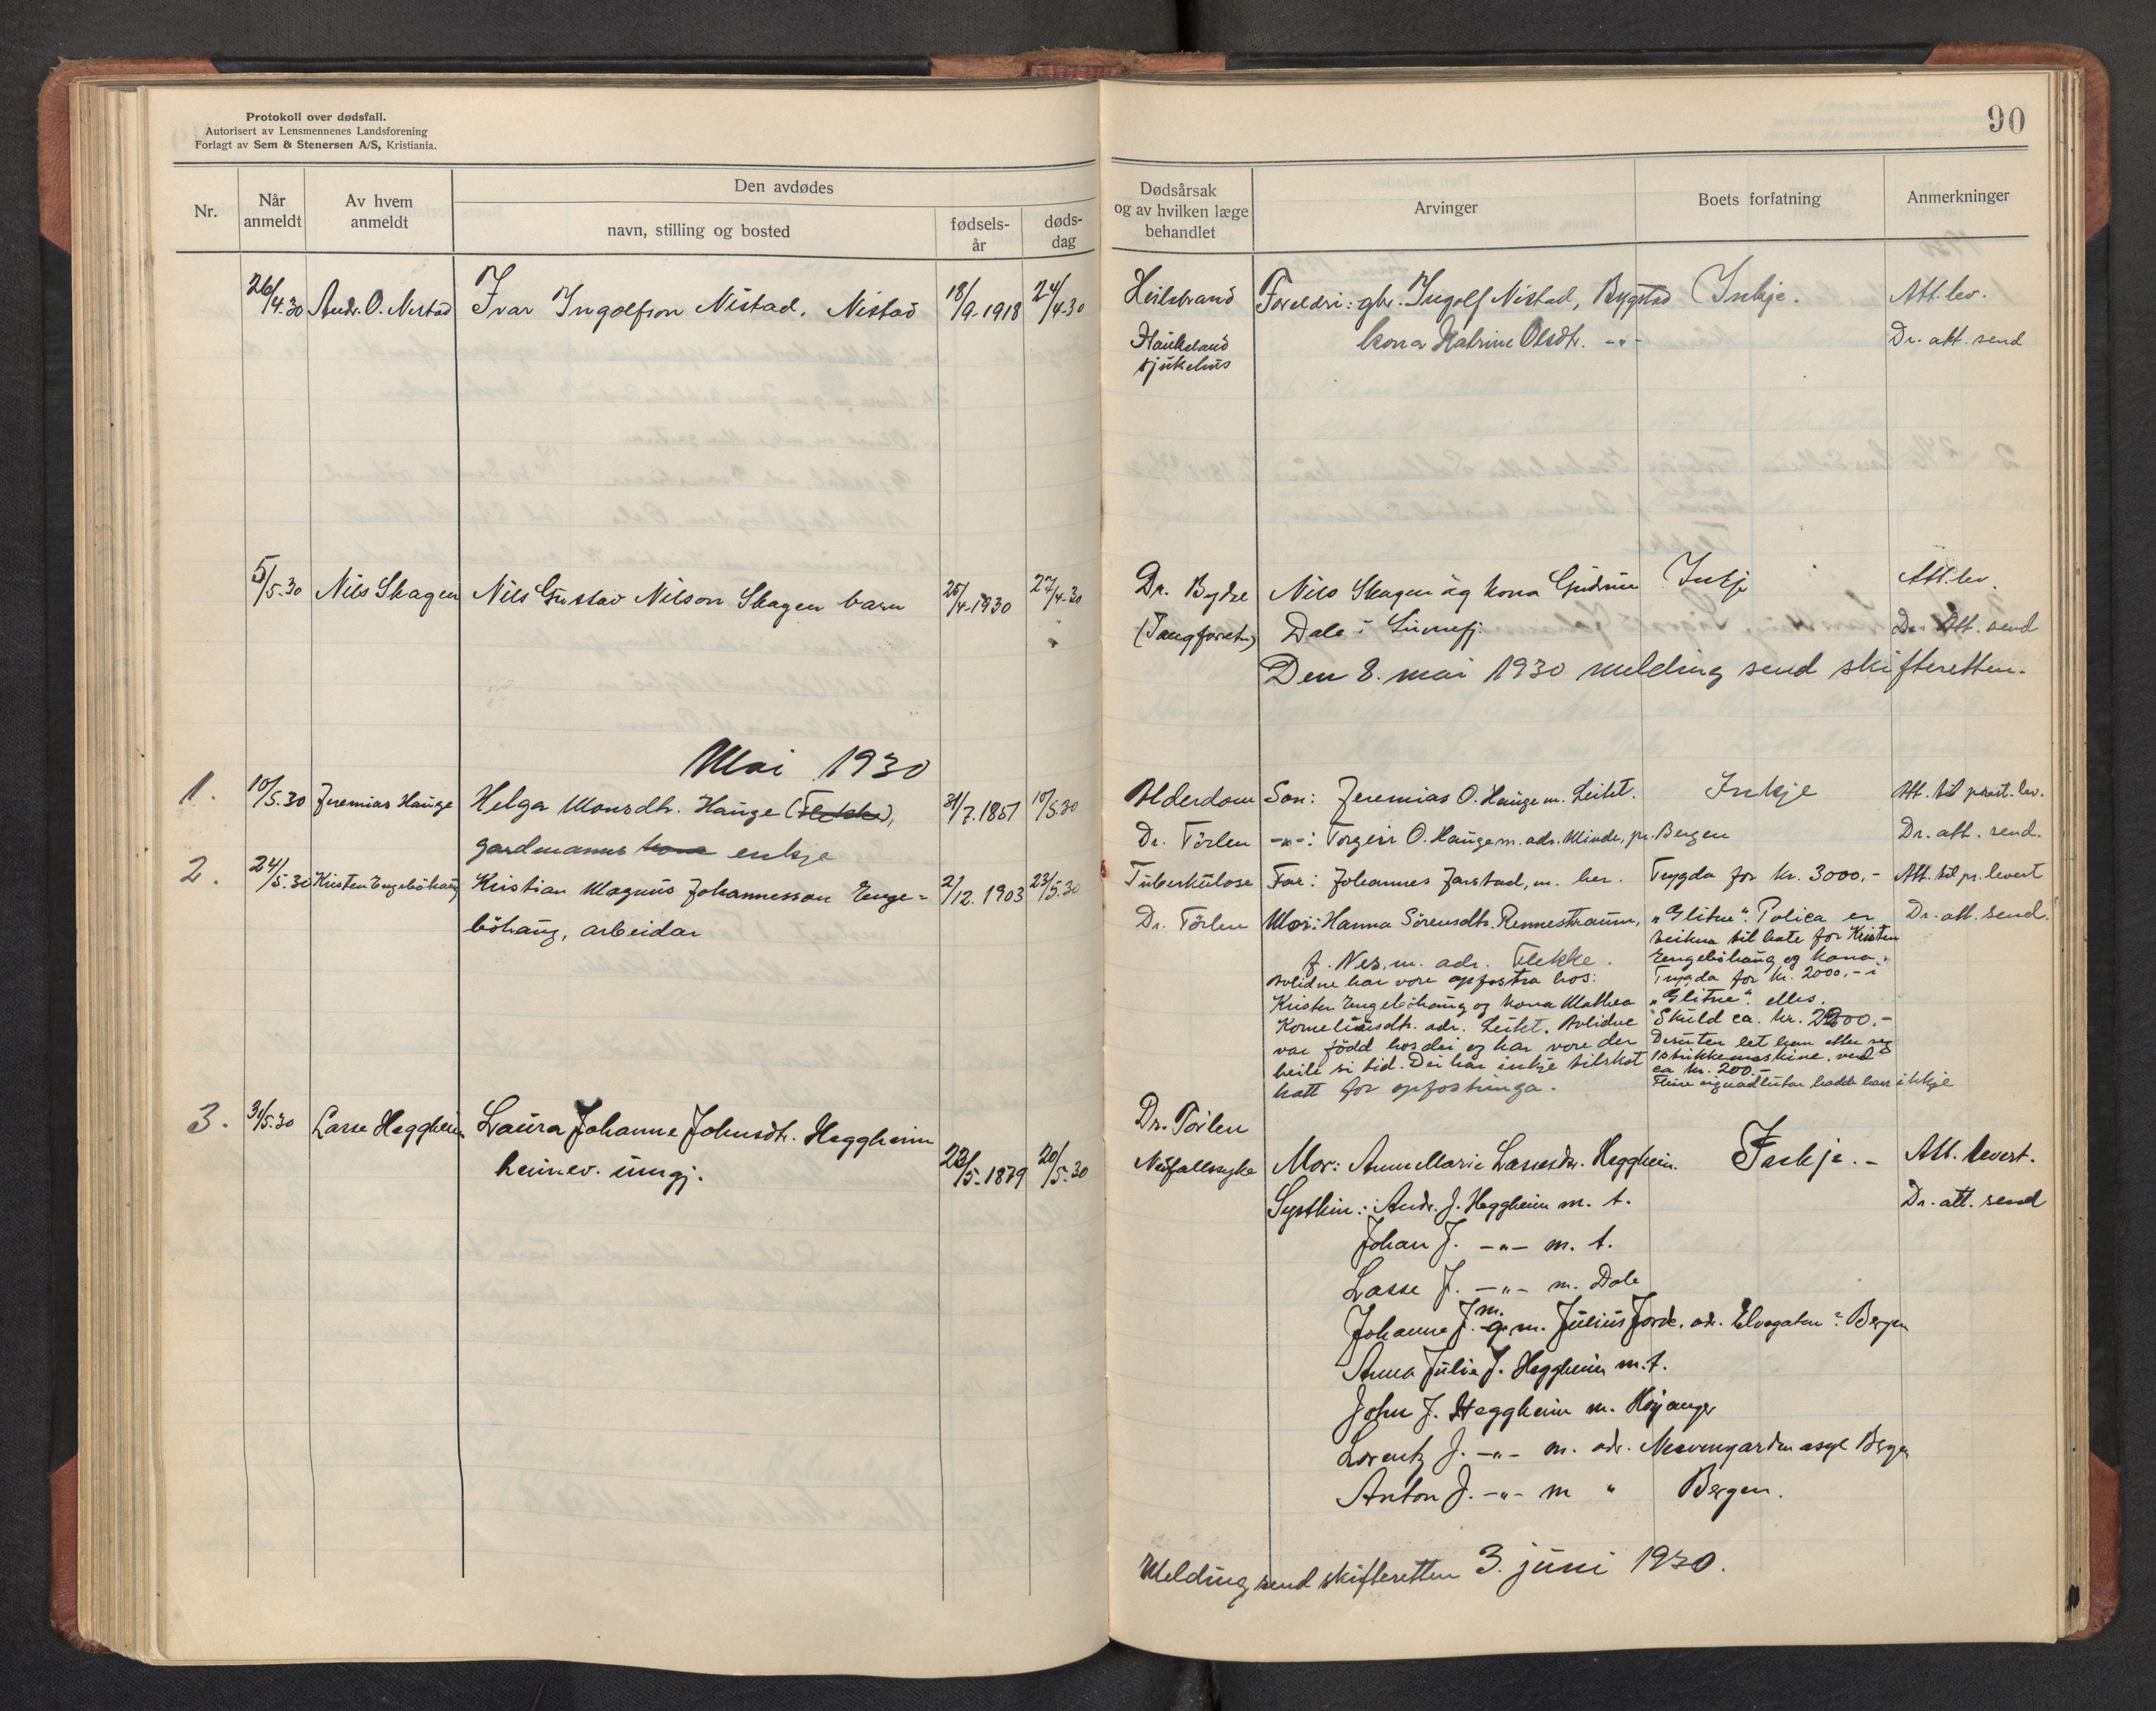 Protokoll over dødsfall.
Autorisert av Lensmennenes Landsforening
Forlagt av Sem & Stenersen A/S, Kristiania.
90
Nr.
Når anmeldt
Av hvem anmeldt
Den avdødes
navn, stilling og bosted
fødsels-år
døds-dag
Dødsårsak og av hvilken læge behandlet
Arvinger
Boets forfatning
Anmerkninger
26/4.30 Andr. O. Nistad Ivar Ingolfson Nistad. Nistad 18/9-1918 24/4-30 Heilebrand Foreldri: gbr. Ingolf Nistad, Bygstad Inkje. Att. lev.
Haukeland kona Katrine Olsdtr. -"- Dr. att. send
sjukehus
5/5-30 Nils Skagen Nils Gustav Nilson Skagen barn 25/4-1930 27/4-30 Dr. Bydse Nils Skagen og kona Gudrun Inkje Att. lev.
(Tangforet.) Dale i Sunnfj. Dr. Att. send
Den 8. mai 1930 melding send skifteretten.
Mai 1930
1. 10/5.30 Jeremias Hauge Helga Monsdtr. Hauge (Flekke), 31/7.1851 10/5.30 Alderdom Son: Jeremias O. Hauge m. Leikt. Inkje Att. til prest. lev.
gardmanns kona enkje Dr. Törlen -"-: Torgeir O. Hauge m. adr. Minde, pr. Bergen Dr. att. send.
2. 24/5.30 Kristen Engeböhaug Kristian Magnus Johannesson Enge= 2/12.1903 23/5.30 Tuberkulose Far: Johannes Jarstad, m. her. Trygda for kr. 3000,- Att. til pr. levert
böhaug, arbeidar Dr. Törlen Mor: Hanna Sörensdtr. Rennestraum, "Glitne". Polica er Dr. att. send.
f. Nes, m. adr. Flekke. teikna til bate for Kristen
Avlidne har vore opfostra hos: Engeböhaug og kona.
Kristen Engeböhaug og kona Mathea Trygda for kr. 2000,- i
Korneliusdtr. adr. Leikt. Avlidne "Glitne" elles.
var född hos dei og har vore der Skuld ca. kr. 2200,-
heile si tid. Dei har inkje tilskot Desuten let han etter seg
hatt for opfostringa. 1 strikkemaskine, verd
ca kr. 200.-
Fleire eignadlutar hadde han ikkje
3. 31/5.30 Lasse Heggheim Laura Johanne Johnsdtr. Heggheim 22/5-1879 20/5-30 Dr. Törlen
heimev. ungj. Nedfallssyke Mor: Anne Marie Lassesdtr. Heggheim. Inkje.- Att. levert.
Systkin: Andr. J. Heggheim m. t. Dr. att. send
Johan J. -"- m. t.
Lasse J. -"- m. Dale
Johanne J. g.m. Julius Jorde. adr. Elvegaten 2 Bergen
Anna Julie J. Heggheim m. t.
John J. Heggheim m. Høyanger
Lorentz J. -"- m. adr. Neevengarden asyl Bergen
Anton J. -"- m " Bergen.
Melding send skifteretten 3. juni 1930.